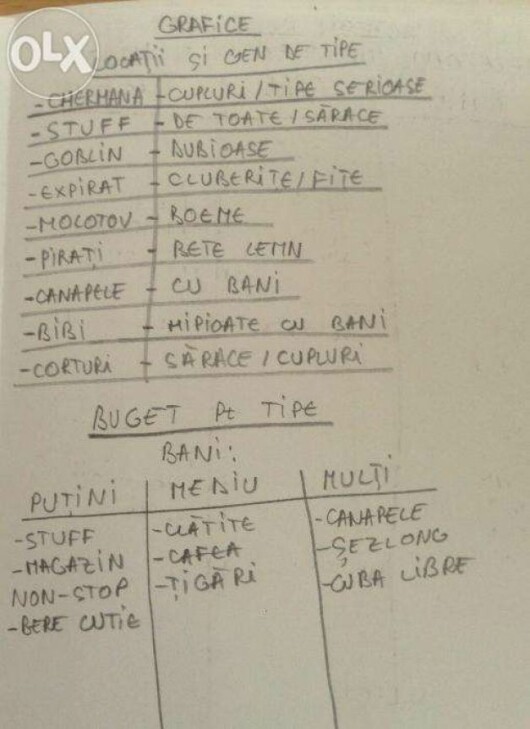 GRAFICE
OLX
LOCAȚII ȘI GEN DE TIPE
-CHERMANA - CUPLURI/TIPE SERIOASE
-STUFF - DE TOATE/SĂRACE
-GOBLIN - DUBIOASE
-EXPIRAT - CLUBERITE/FIȚE
-MOLOTOV - BOEME
-PIRAȚI - BETE LEMN
-CANAPELE - CU BANI
-BIBI - HIPIOATE CU BANI
-CORTURI - SĂRACE/CUPLURI
BUGET Pt TIPE
BANI:
PUȚINI MEDIU MULȚI
-STUFF -CLĂTITE -CANAPELE
-MAGAZIN -CAFEA -ȘEZLONG
NON-STOP -ȚIGĂRI -CUBA LIBRE
-BERE CUTIE